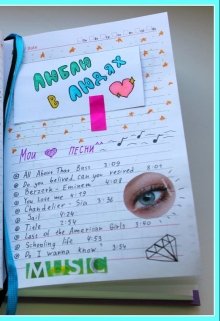 Люблю
в людях
Мои песни
All About That Bass 3:09
Do you belived can you resired 8:09
Berzerk - Eminem 4:08
You love me 4:19
Chandelier - Sia 3:36
Sail 4:24
Title 2:54
Last of the American Girls 3:40
Schooling life 4:53
Do I wanna know? 3:54
MUSIC